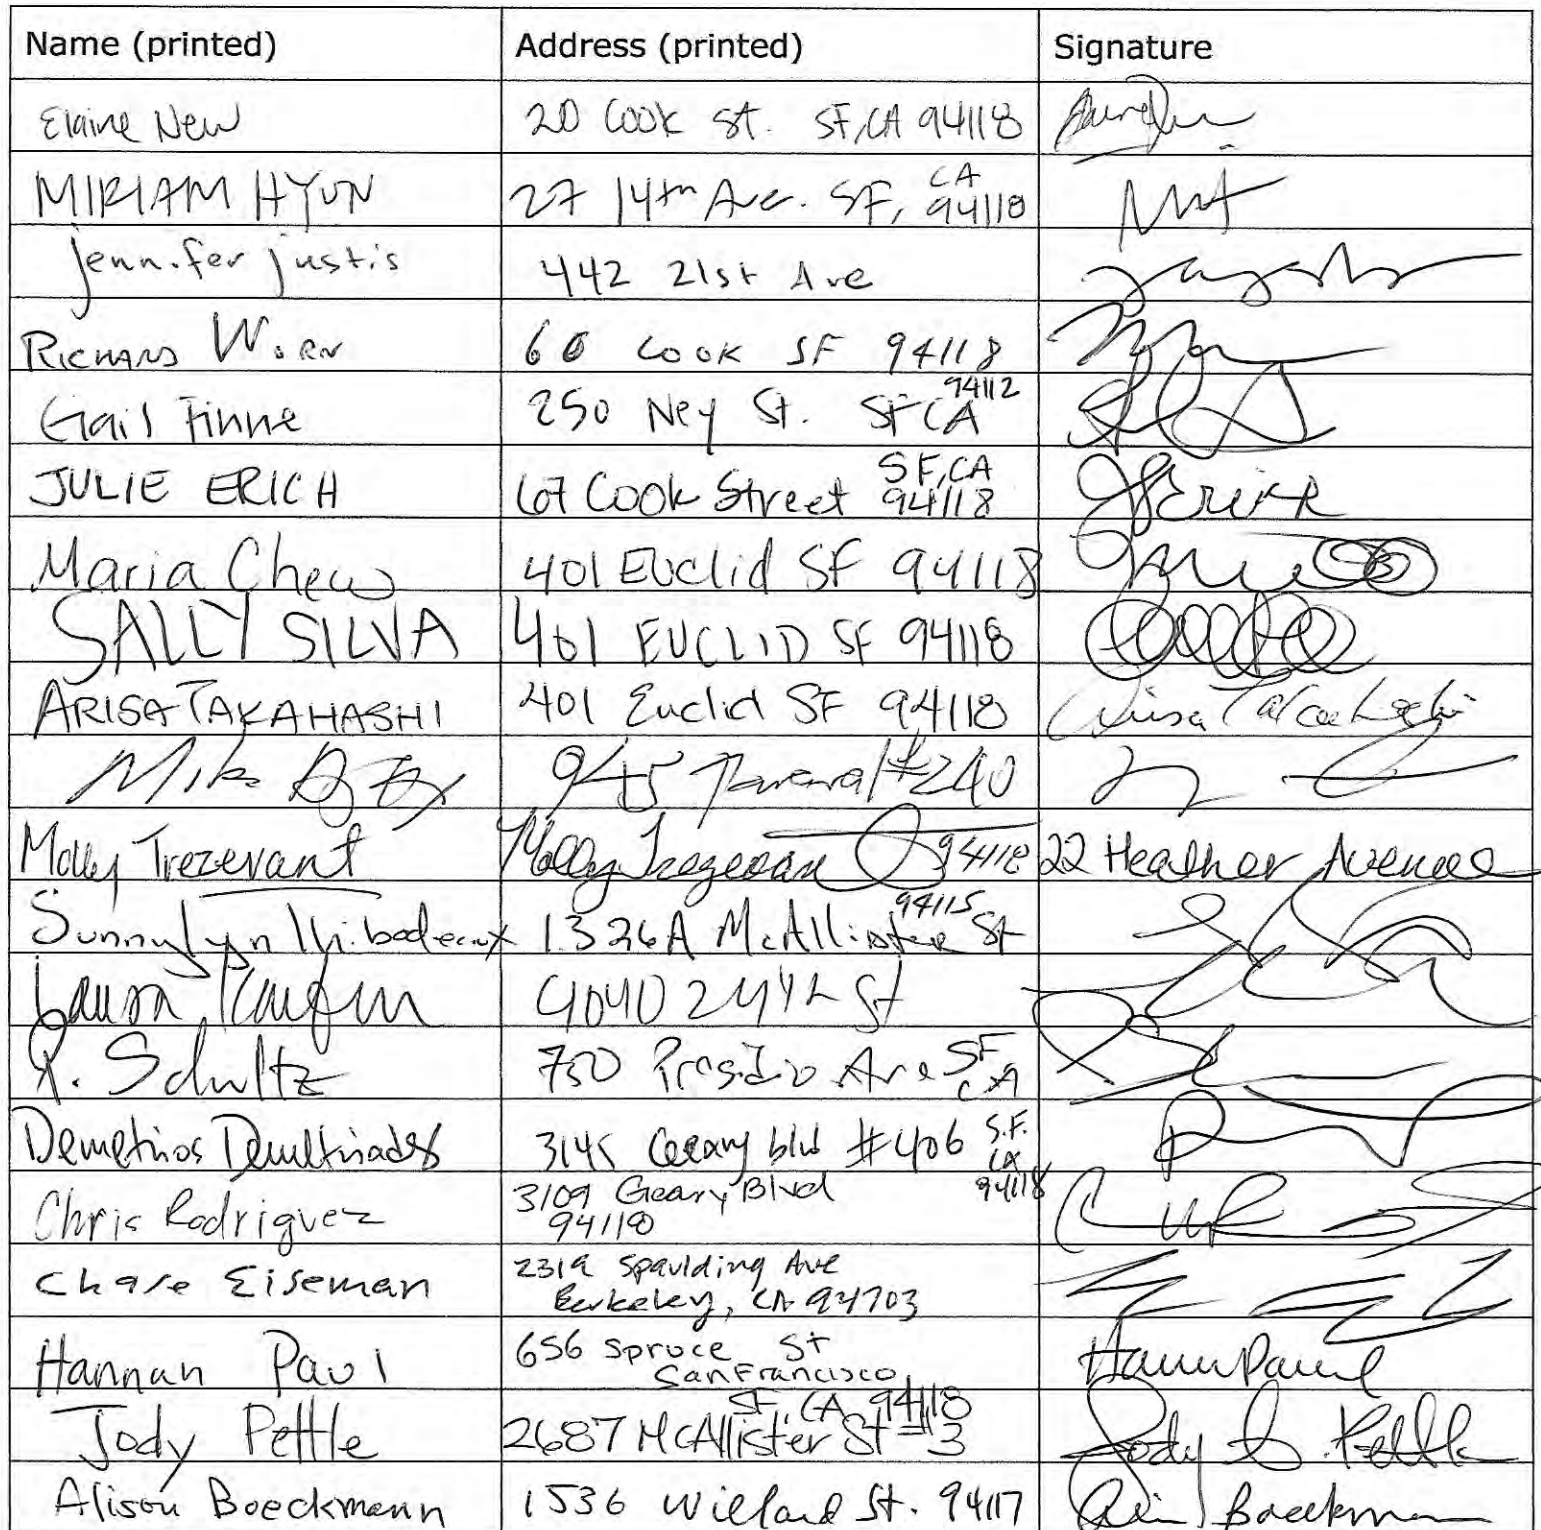 Name (printed) Address (printed) Signature
Elaine New 20 Cook St. SF, CA 94118
MIRIAM HYUN 27 14th Ave. SF, CA 94118
jennifer justis 442 21st Ave
RICHARD WORN 60 COOK SF 94118
Gail Finne 250 Ney St. SF CA 94112
JULIE ERICH 67 Cook Street SF, CA 94118 JErich
Maria Chew 401 Euclid SF 94118
SALLY SILVA 401 EUCLID SF 94118
ARISA TAKAHASHI 401 Euclid SF 94118 Arisa Takahashi
Mike 945 Taraval #240
Molly Trezevant Molly Trezevant 94118 22 Heather Avenue
Sunnylyn Thibodeaux 1326A McAllister St 94115
Laura 4040 24th St
R. Schultz 750 Presidio Ave SF CA
Demetrios Demetriades 3145 Geary blvd #406 S.F. CA 94118
Chris Rodriguez 3109 Geary Blvd
94118
Chase Eiseman 2319 Spaulding Ave
Berkeley, CA 94703
Hannah Paul 656 Spruce St
San Francisco
Jody Pettle 2687 McAllister St #3 SF, CA 94118 Jody Pettle
Alison Boeckmann 1536 Willard St. 94117 Boeckmann